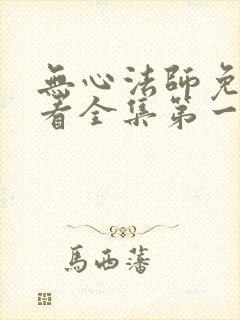 無心法師免
看全集第一
馬西藩